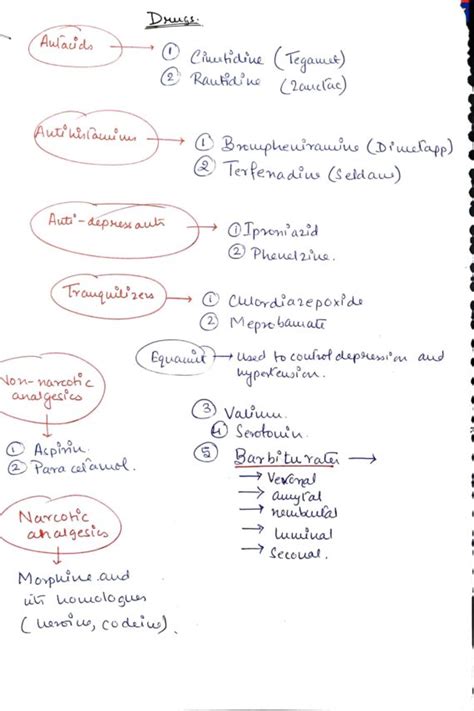 Drugs.
Antacids
① Cimitidine (Tegamet)
② Rantidine (Zanctac)
Antihistamines
① Brompheniramine (Dimetapp)
② Terfenadine (Seldane)
Anti-depressants
① Iproniazid
② Phenelzine.
Tranquilizers
① Chlordiazepoxide
② Meprobamate
Equanil → used to control depression and
hypertension.
③ Valium.
④ Serotonin.
⑤ Barbiturates →
→ Veronal
→ amytal
→ nembutal
→ luminal
→ Seconal.
Non-narcotic
analgesics
① Aspirin.
② Paracetamol.
Narcotic
analgesics
Morphine and
its homologues
(heroine, codeine).